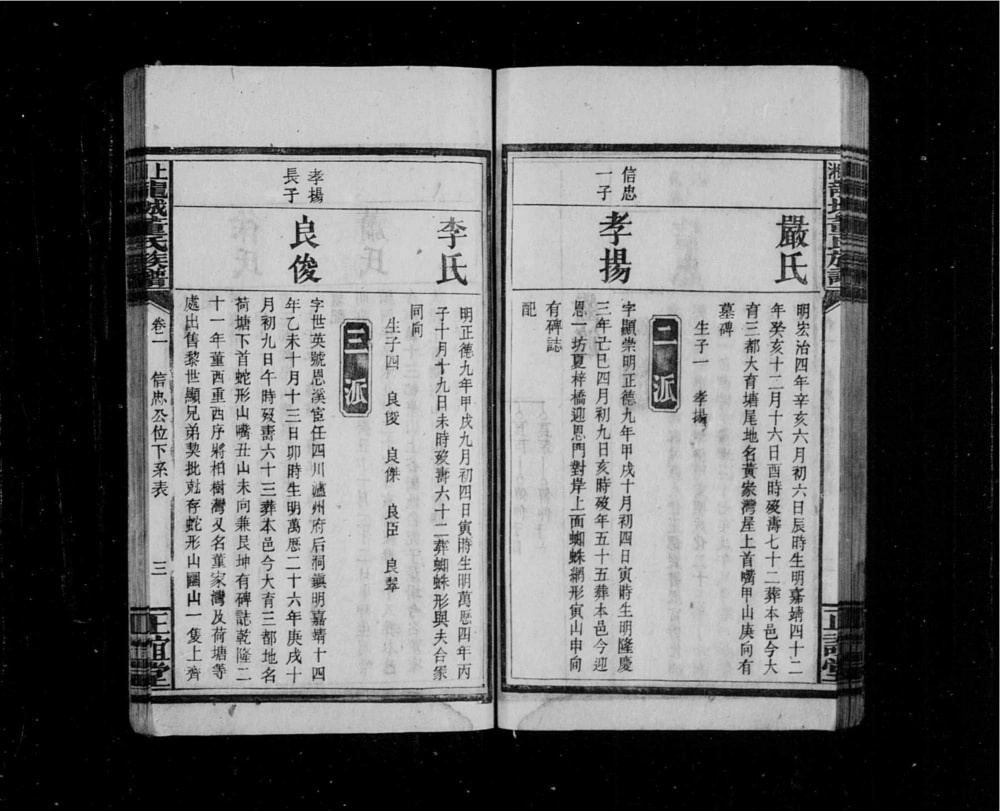 嚴氏
明宏治四年辛亥六月初六日辰時生明嘉靖四十二
年癸亥十二月十六日酉時歿壽七十二葬本邑今大
育三都大育塘尾地名黃家灣屋上首嘴甲山庚向有
墓碑
生子一 孝揚
二派
信忠
一子
孝揚
字顯崇明正德九年甲戌十月初四日寅時生明隆慶
三年亡巳四月初九日亥時歿年五十五葬本邑今迎
恩一坊夏梓橋迎恩門對岸上面蜘蛛網形寅山申向
有碑誌
配
李氏
明正德九年甲戌九月初四日寅時生明萬厯四年丙
子十月十九日未時歿壽六十二葬蜘蛛形與夫合冢
同向
生子四 良俊 良傑 良臣 良翠
三派
孝揚
長子
良俊
字世英號恩溪官任四川瀘州府后洞鎮明嘉靖十四
年乙未十月十三日卯時生明萬厯二十六年庚戌十
月初九日午時歿壽六十三葬本邑今大育三都地名
荷塘下首蛇形山嘴丑山未向兼艮坤有碑誌乾隆二
十一年董西重西序將柏樹灣又名董家灣及荷塘等
處出售黎世顯兄弟契批兢存蛇形山關山一隻上齊
上 龍城董氏族譜
卷二
信忠公位下系表
三
正誼堂